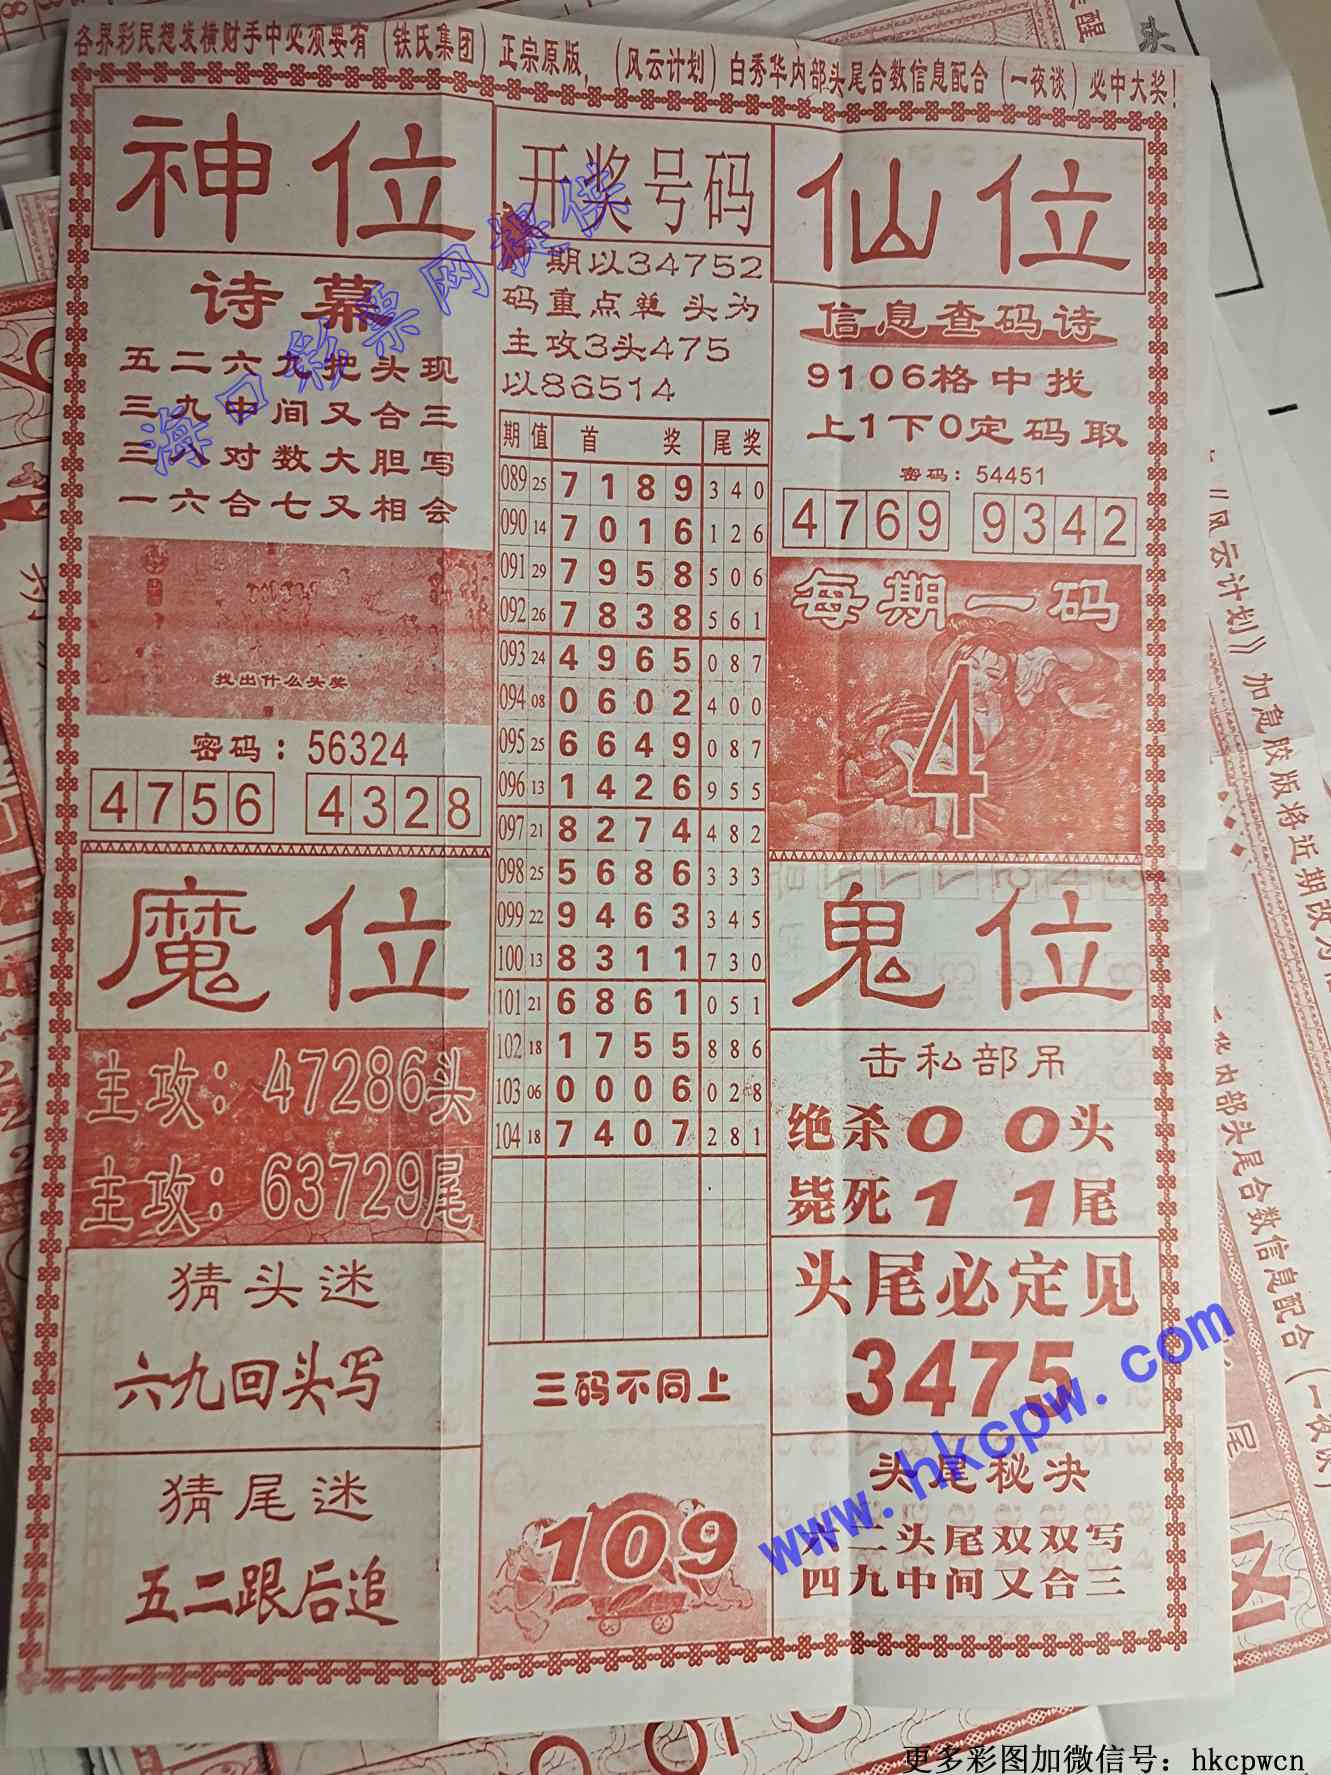 各界彩民想发横财手中必须要有（铁氏集团）正宗原版，（风云计划）白秀华内部头尾合数信息配合（一夜谈）必中大奖！
神位
诗幕
五二六九把头现
三九中间又合三
三八对数大胆写
一六合七又相会
找出什么头奖
密码：56324
4756 4328
魔位
主攻：47286头
主攻：63729尾
猜头迷
六九回头写
猜尾迷
五二跟后追
开奖号码
期以34752
码重点单 头为
主攻3头475
以86514
期 值 首 奖 尾 奖
089 25 7 1 8 9 3 4 0
090 14 7 0 1 6 1 2 6
091 29 7 9 5 8 5 0 6
092 26 7 8 3 8 5 6 1
093 24 4 9 6 5 0 8 7
094 08 0 6 0 2 4 0 0
095 25 6 6 4 9 0 8 7
096 13 1 4 2 6 9 5 5
097 21 8 2 7 4 4 8 2
098 25 5 6 8 6 3 3 3
099 22 9 4 6 3 3 4 5
100 13 8 3 1 1 7 3 0
101 21 6 8 6 1 0 5 1
102 18 1 7 5 5 8 8 6
103 06 0 0 0 6 0 2 8
104 18 7 4 0 7 2 8 1
三码不同上
109
仙位
信息查码诗
9106格中找
上1下0定码取
密码：54451
4769 9342
每期一码
4
鬼位
击私部吊
绝杀0 0头
毙死1 1尾
头尾必定见
3475
头尾秘决
六二头尾双双写
四九中间又合三
海口彩票网提供
www.hkcpw.com
《风云计划》加急胶版将近期改为
内部头尾合数信息配合（一夜谈）
更多彩图加微信号：hkcpwcn